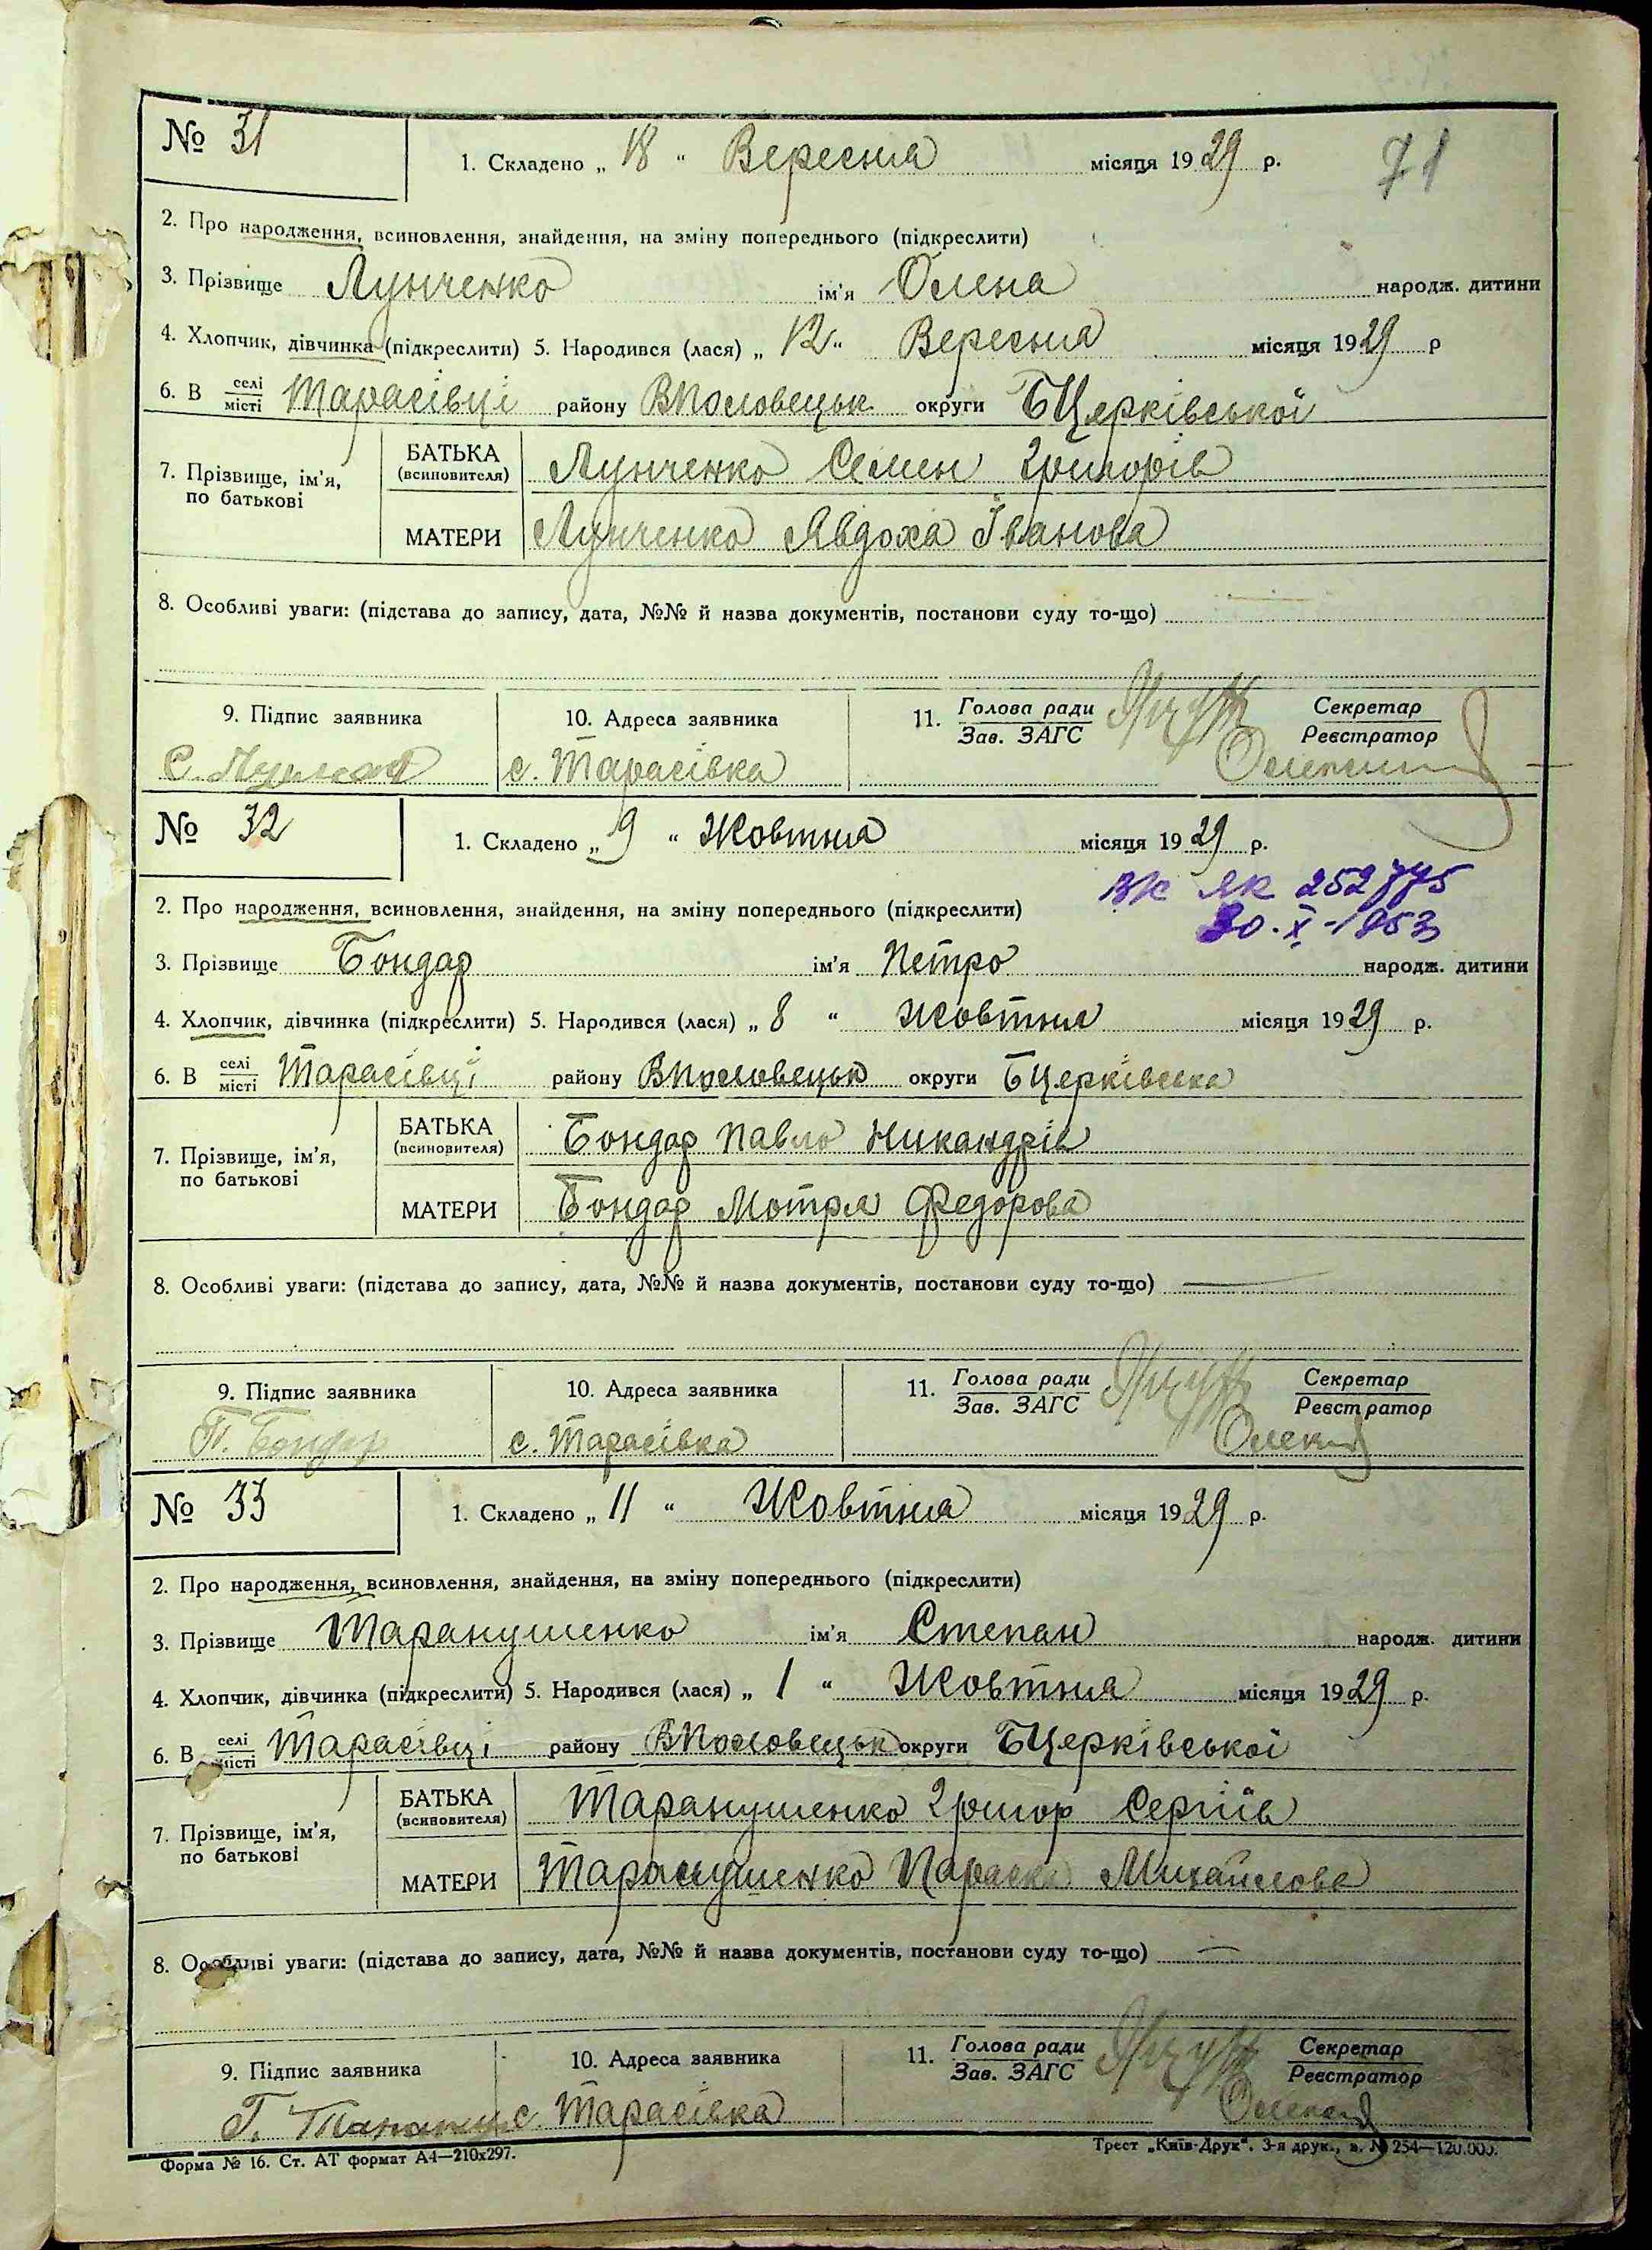 71
№ 31
1. Складено „ 18 “ Вересня місяця 1929 р.
2. Про народження, всиновлення, знайдення, на зміну попереднього (підкреслити)
3. Прізвище Лунченко ім'я Олена народж. дитини
4. Хлопчик, дівчинка (підкреслити) 5. Народився (лася) „ 12 “ Вересня місяця 1929 р
6. В селі місті Тарасівці району ВПоловецьк округи БЦерківської
7. Прізвище, ім'я, по батькові
БАТЬКА (всиновителя) Лунченко Семен Григорів
МАТЕРИ Лунченко Явдоха Іванова
8. Особливі уваги: (підстава до запису, дата, №№ й назва документів, постанови суду то-що)
9. Підпис заявника 10. Адреса заявника 11. Голова ради Зав. ЗАГС Секретар Реєстратор
с. Тарасівка
№ 32
1. Складено „ 9 “ Жовтня місяця 1929 р.
ЯК 252775
30.X-1953
2. Про народження, всиновлення, знайдення, на зміну попереднього (підкреслити)
3. Прізвище Бондар ім'я Петро народж. дитини
4. Хлопчик, дівчинка (підкреслити) 5. Народився (лася) „ 8 “ Жовтня місяця 1929 р.
6. В селі місті Тарасівці району ВПоловецьк округи БЦерківська
7. Прізвище, ім'я, по батькові
БАТЬКА (всиновителя) Бондар Павло Никандрів
МАТЕРИ Бондар Мотря Федорова
8. Особливі уваги: (підстава до запису, дата, №№ й назва документів, постанови суду то-що)
9. Підпис заявника 10. Адреса заявника 11. Голова ради Зав. ЗАГС Секретар Реєстратор
П. Бондар с. Тарасівка
№ 33
1. Складено „ 11 “ Жовтня місяця 1929 р.
2. Про народження, всиновлення, знайдення, на зміну попереднього (підкреслити)
3. Прізвище Таранушенко ім'я Степан народж. дитини
4. Хлопчик, дівчинка (підкреслити) 5. Народився (лася) „ 1 “ Жовтня місяця 1929 р.
6. В селі місті Тарасівці району ВПоловецьк округи БЦерківської
7. Прізвище, ім'я, по батькові
БАТЬКА (всиновителя) Таранушенко Григор Сергіїв
МАТЕРИ Таранушенко Параска Михайлова
8. Особливі уваги: (підстава до запису, дата, №№ й назва документів, постанови суду то-що)
9. Підпис заявника 10. Адреса заявника 11. Голова ради Зав. ЗАГС Секретар Реєстратор
Г. с. Тарасівка
Форма № 16. Ст. АТ формат А4—210х297. Трест „Київ-Друк“. 3-я друк., з. № 254—120.000.